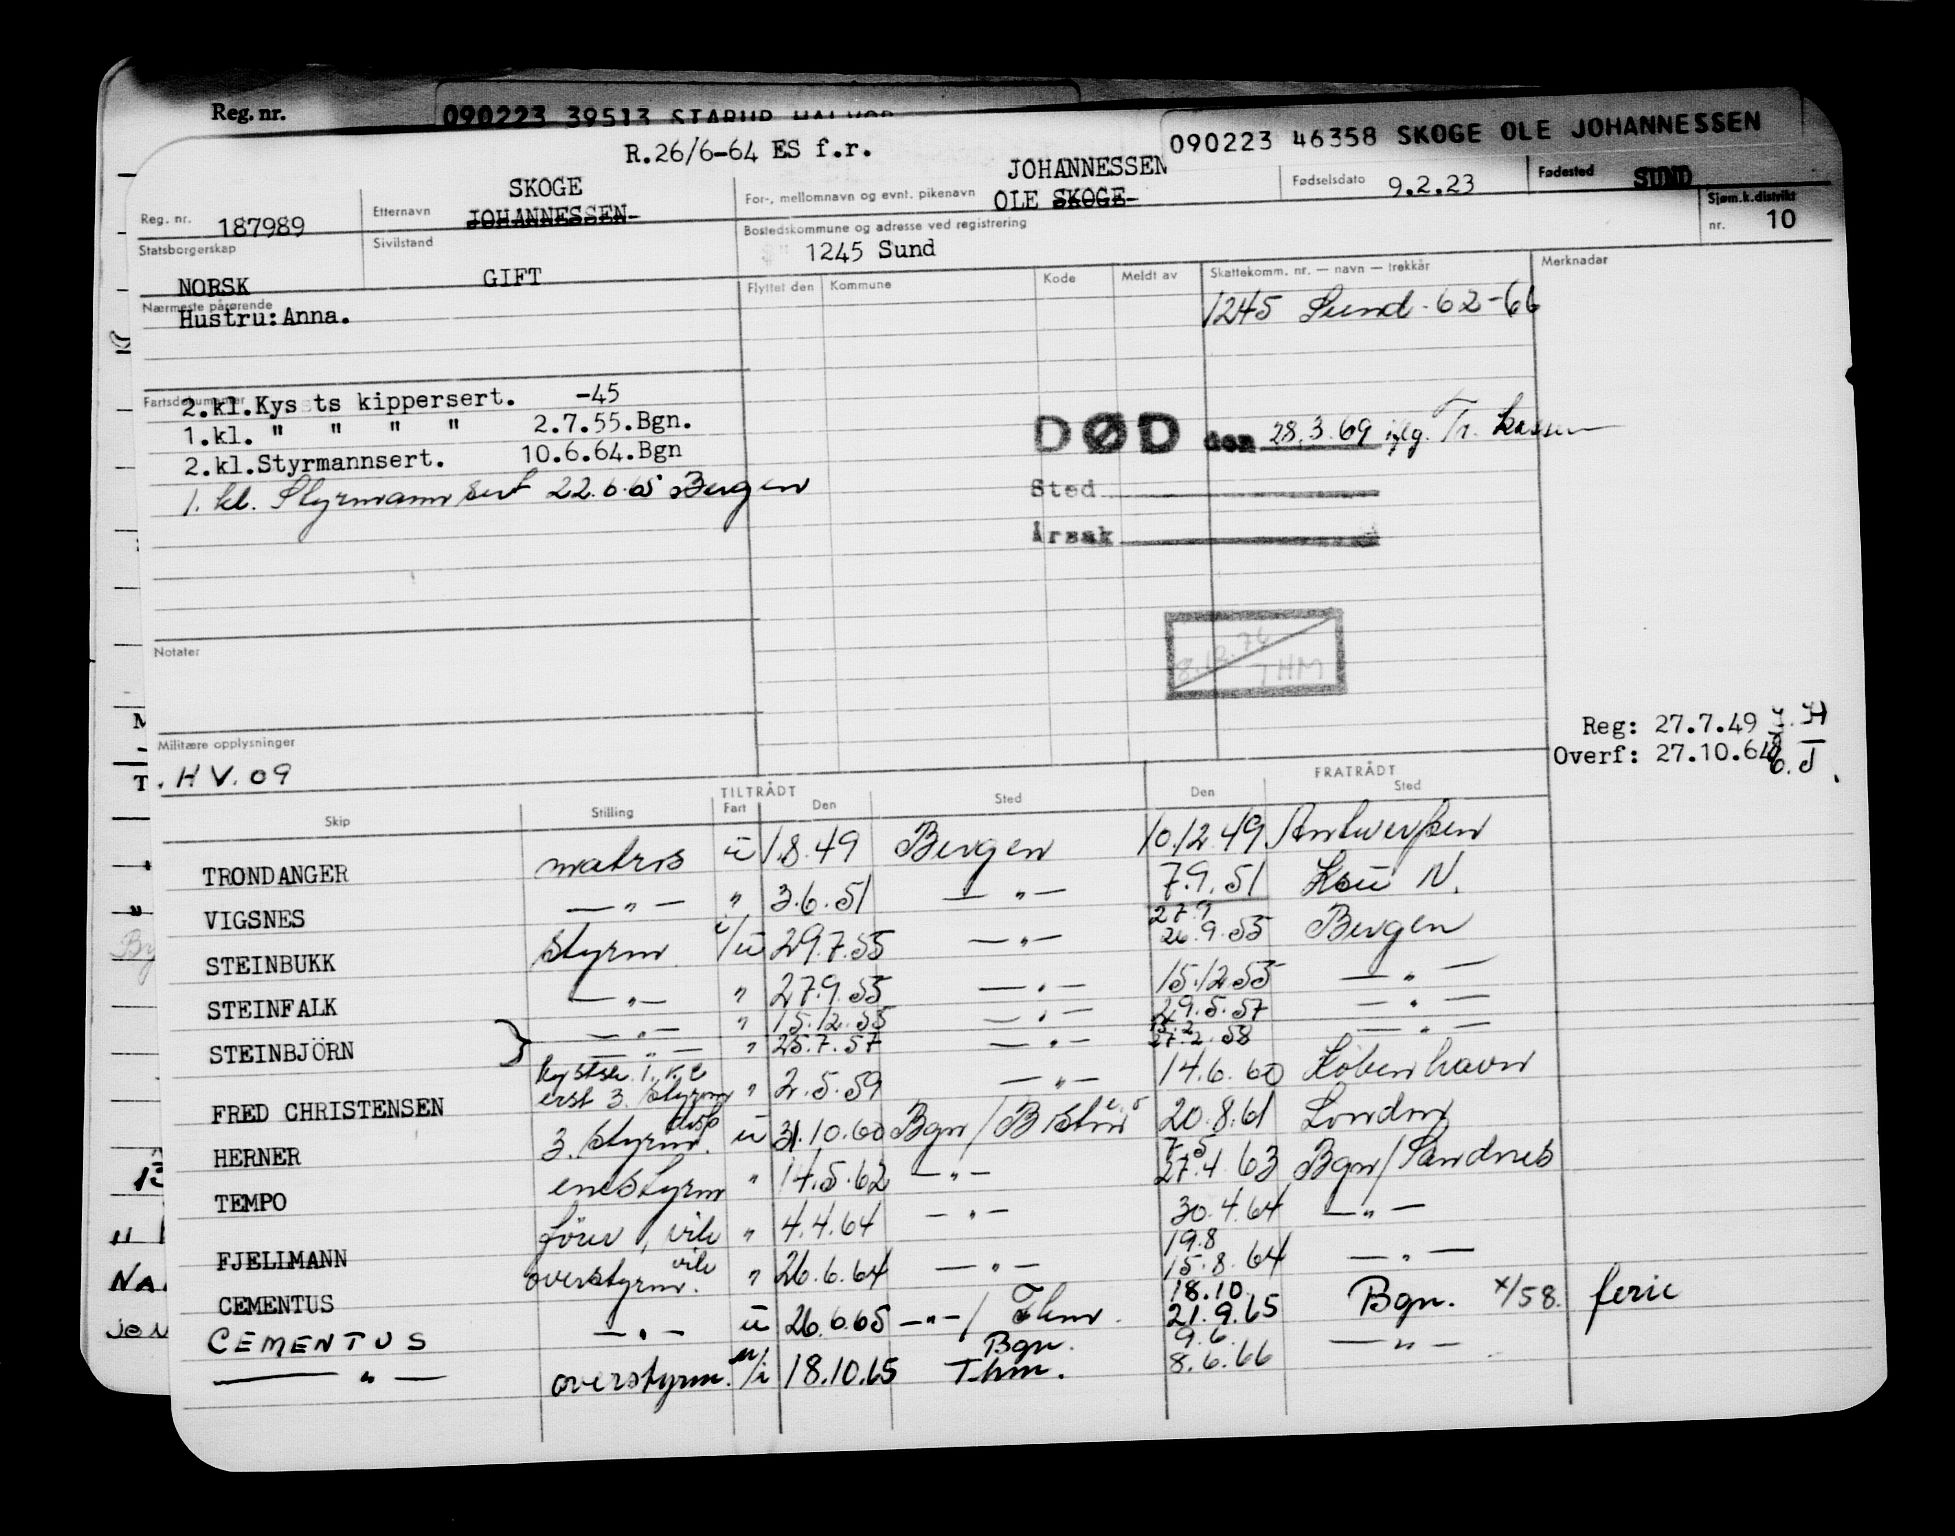 Reg. nr. 090223 39513 STARUP HALVOR
090223 46358 SKOGE OLE JOHANNESSEN
R.26/6-64 ES f.r.
Reg. nr. 187989
Etternavn SKOGE JOHANNESSEN-
For-, mellomnavn og evnt. pikenavn JOHANNESSEN OLE SKOGE-
Fødselsdato 9.2.23
Fødested SUND
Statsborgerskap NORSK
Sivilstand GIFT
Bostedskommune og adresse ved registrering 1245 Sund
Sjøm.k.distrikt nr. 10
Nærmeste pårørende
Hustru: Anna.
Flyttet den Kommune Kode Meldt av Skattekomm. nr. — navn — trekkår Merknader
1245 Sund - 62-66
Fartsdokumenter
2.kl.Kys ts kippersert. -45
1.kl. " " " " 2.7.55.Bgn.
2.kl.Styrmannsert. 10.6.64.Bgn
1. kl. Styrmann sert 22.6.65 Bergen
DØD den 28.3.69 iflg. Tr. kassen
Sted
Årsak
8.12.76 THM
Notater
Militære opplysninger
. H V. 09
Reg: 27.7.49
Overf: 27.10.64
TILTRÅDT FRATRÅDT
Skip Stilling Fart Den Sted Den Sted
TRONDANGER matros u 1.8.49 Bergen 10.12.49 Antwerpen
VIGSNES — " — " 3.6.51 — " — 7.9.51 N.
STEINBUKK styrm i/u 29.7.55 — " — 27.9 26.9.55 Bergen
STEINFALK — " — " 27.9.55 — " — 15.12.55 — " —
STEINBJÖRN } — " — " 15.12.55 — " — 29.5.57 — " —
— " — " 25.7.57 — " — 15.2 27.2.58 — " —
FRED CHRISTENSEN 3. styrm " 2.5.59 — " — 14.6.60 København
HERNER 3. styrm. disp u 31.10.60 Bgn / 20.8.61 London
TEMPO enestyrm " 14.5.62 — " — 7.5 27.4.63 Bgn/Sandnes
FJELLMANN förer, vik " 4.4.64 — " — 30.4.64 — " —
CEMENTUS overstyrm. vik " 26.6.64 — " — 19.8 15.8.64 — " —
CEMENTUS — " — u 26.6.65 — " — / Thm. 18.10 21.9.65 Bgn. x/58. ferie
— " — overstyrm. u/i 18.10.65 Bgn. Thm. 9.6. 8.6.66 — " —